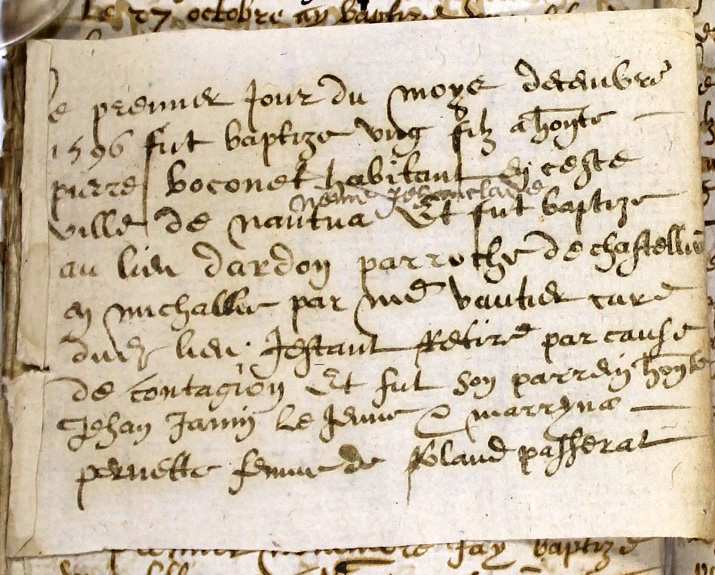 Le 27 octobre ay baptizé
e premier Jour du moys decembre
1596 fut baptize ung filz a honte
pierre boconet habitant En ceste
nomme Jehan claude
ville de nantua Et fut baptize
au lieu dardon parroche de chastellio
en michallie par me vautier curé
dud lieu Jestant Retiré par cause
de contagion Et fut son parrein honte
Jehan Janin Le Jeune & marryne
pernette femme de Roland passerat
premier novembre Jay baptizé